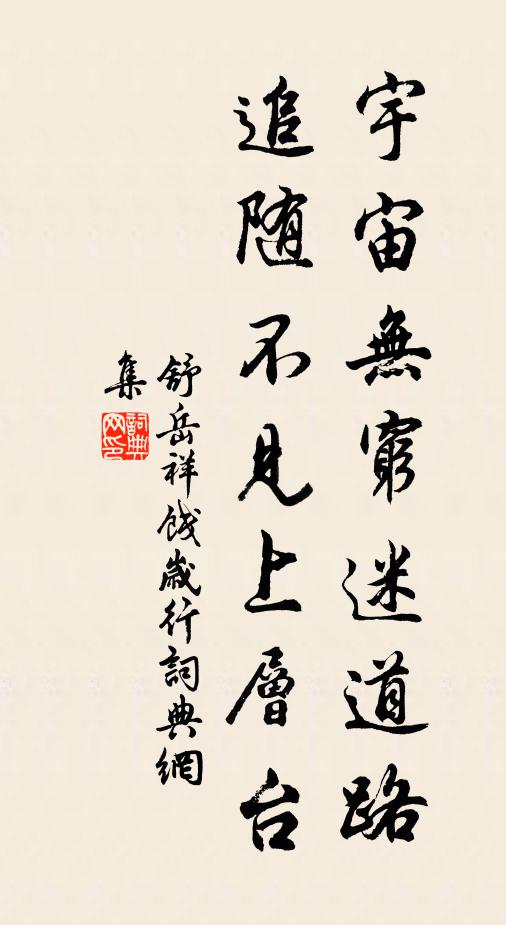 宇宙無窮迷道路
追随不見上層台
舒岳祥餞歲行詞典網
集
詞典网印